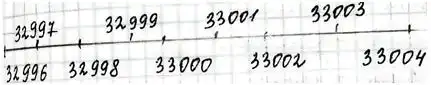 32997 32999 33001 33003
32996 32998 33000 33002 33004